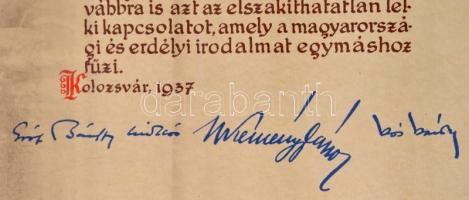 vábbra is azt az elszakíthatatlan lel-
ki kapcsolatot, amely a magyarorszá-
gi és erdélyi irodalmat egymáshoz
fűzi.
Kolozsvár, 1937
darabanth
Gróf Bánffy Miklós Kemény János Kós Károly